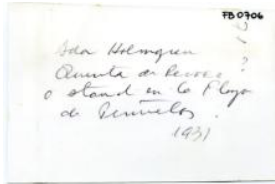 FB0706
Ada Holmgren
Quinta de Recreo ?
o stand en la Playa
de Penuelas.
1931